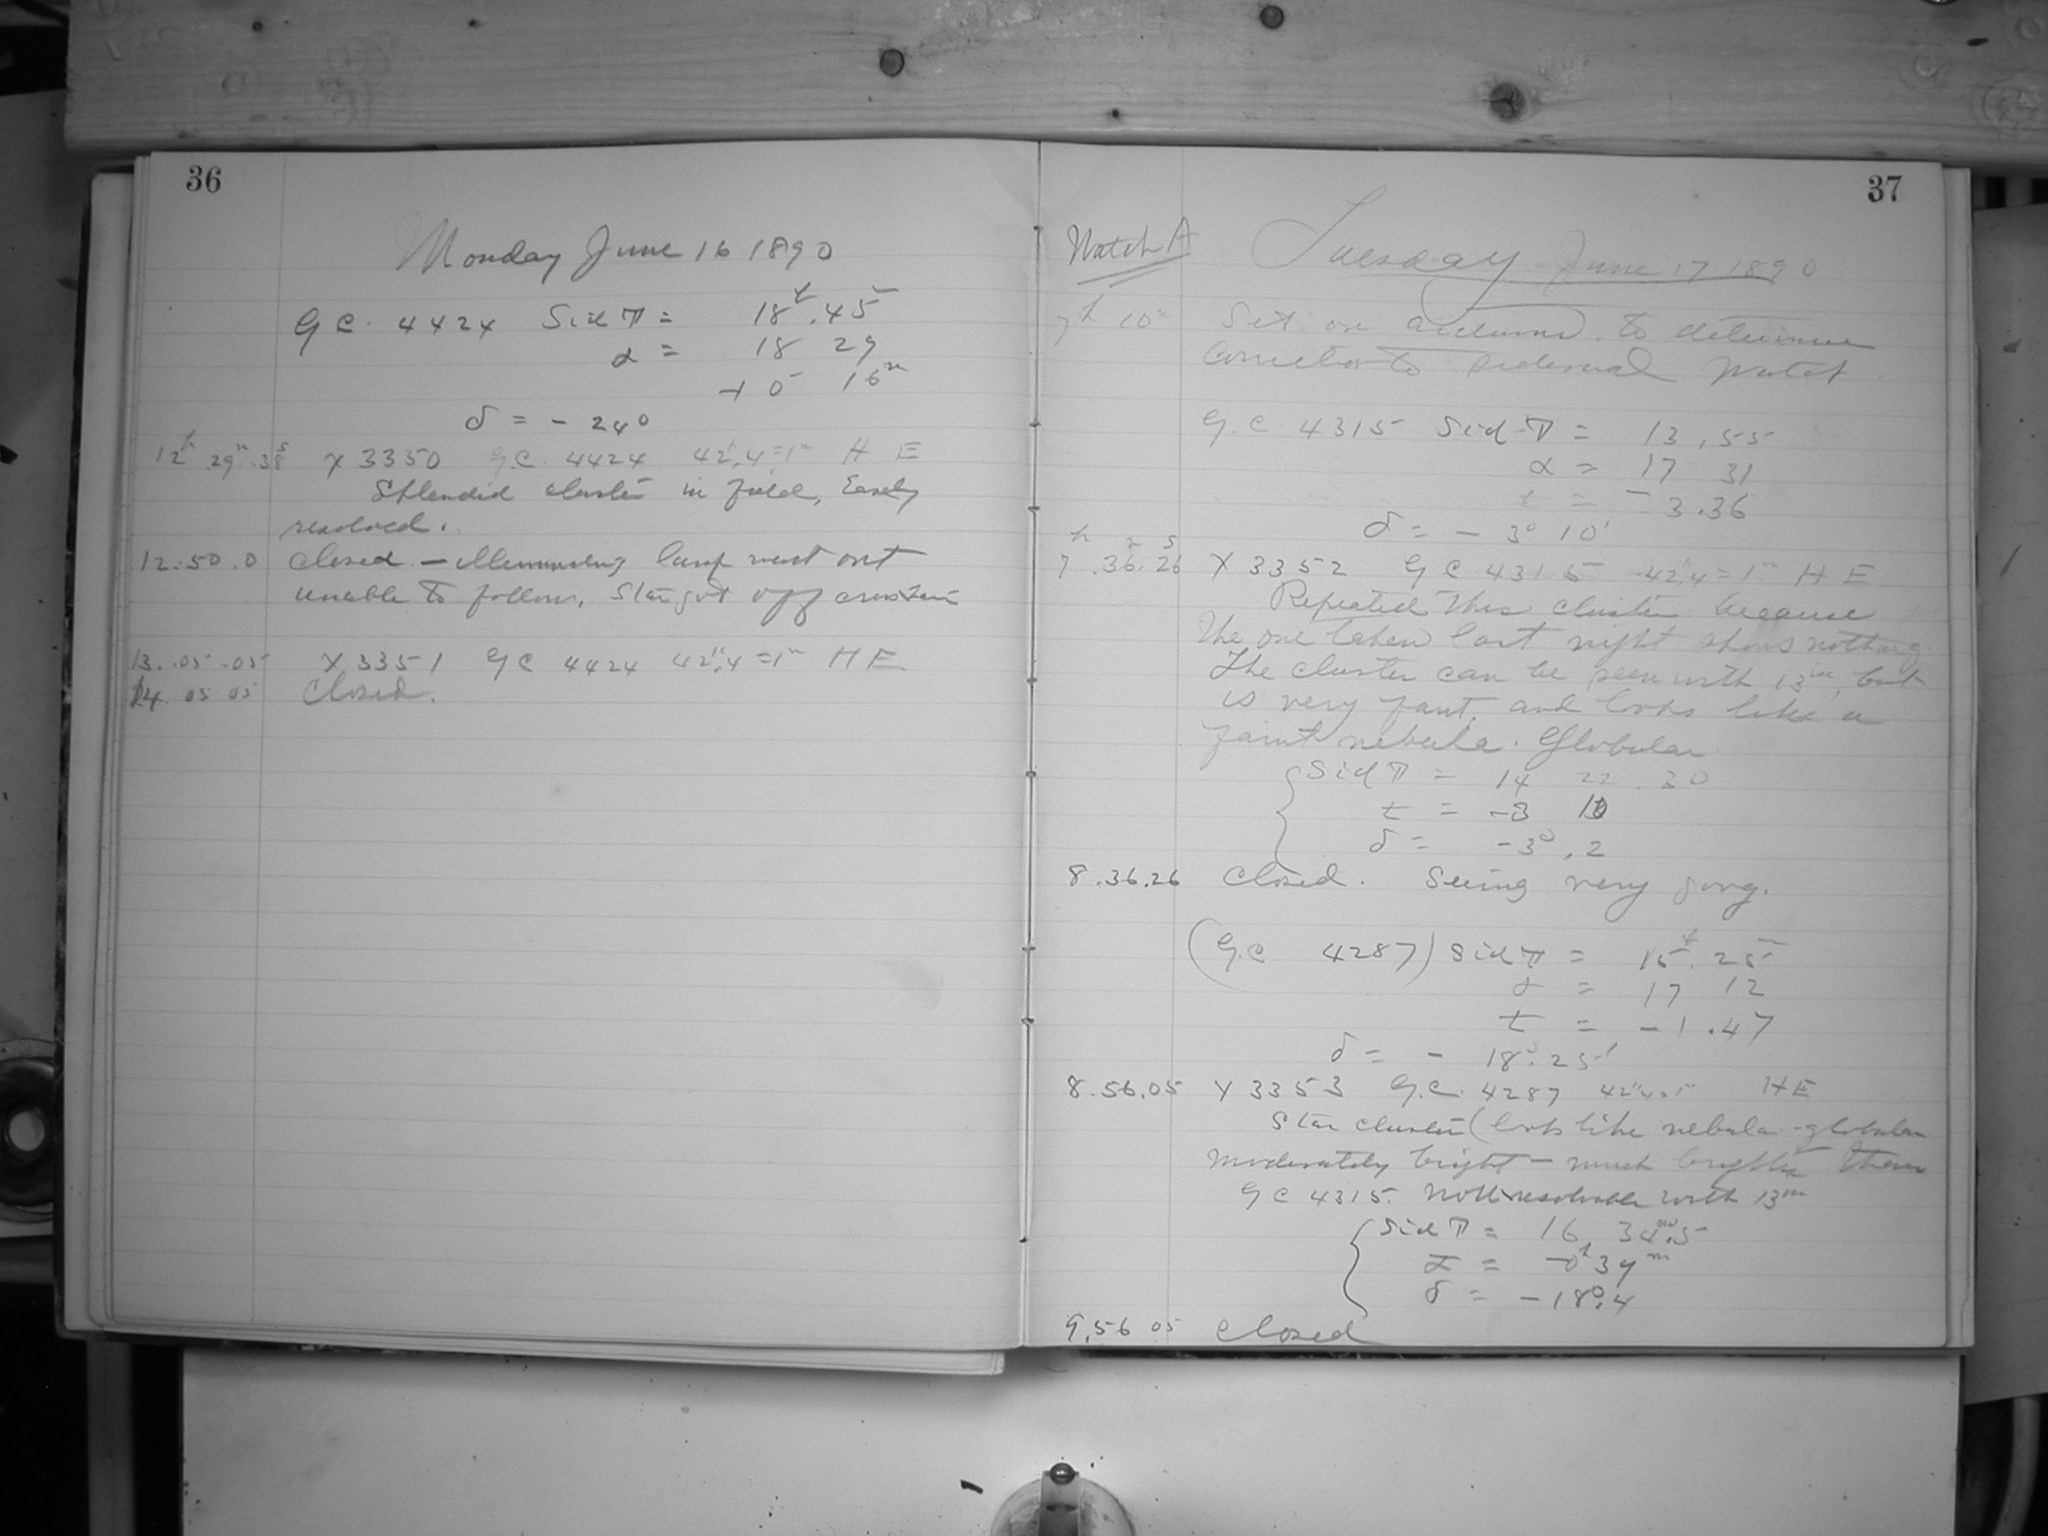 36
Monday June 16 1890
G C. 4424 Sid T = 18h.45m
α = 18 29
+ 0 16m
δ = - 24°
12h.29m.38s X 3350 G.C. 4424 42".4=1m H E
Splendid cluster in field, Easely
resolved.
12.50.0 closed. — Illuminating lamp went out
unable to follow. Star got off
13.05.05 X 3351 G C 4424 42".4=1m H E
14.05 05 Closed.
37
Watch A
Tuesday June 17 1890
7h 10m Set on arcturus to determine
correction to sidereal watch.
G.C. 4315 Sid T = 13.55
α = 17 31
t = - 3.36
δ = - 3° 10'
h m s
7.36.26 X 3352 G C 4315 42".4=1m H E
Repeated this cluster because
the one taken last night shows nothing
The cluster can be seen with 13in, but
is very faint, and looks like a
faint nebula. Globular
Sid T = 14 22 30
t = -3 10
δ = -3°.2
8.36.26 Closed. Seeing very
(G.C. 4287) Sid T = 15h.25m
α = 17 12
t = -1.47
δ = - 18°.25'
8.56.05 X 3353 G.C. 4287 42".4=1m H E
Star cluster (looks like nebula - globular
moderately bright — much brighter than
G C 4315. Not resolvable with 13in
Sid T = 16 34m.5
t = -0h 39m
δ = -18°.4
9.56 05 Closed